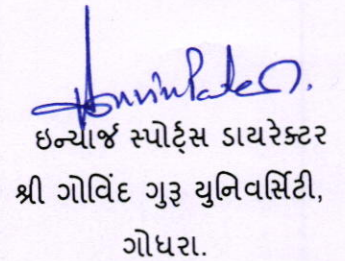 ઇન્ચાર્જ સ્પોર્ટ્સ ડાયરેક્ટર
શ્રી ગોવિંદ ગુરૂ યુનિવર્સિટી,
ગોધરા.